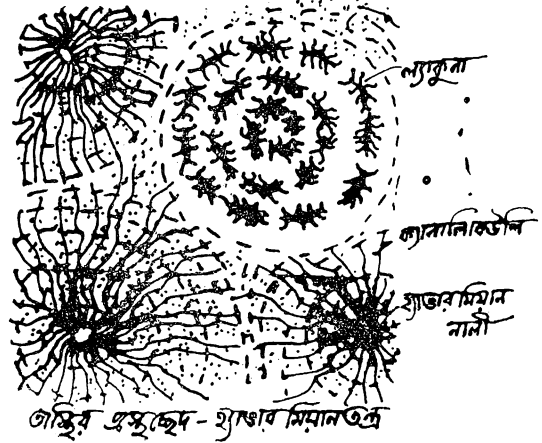 ল্যাকুনা
ক্যানালিকিউলি
হ্যাভারসিয়ান
নালী
অস্থির প্রস্থচ্ছেদ - হ্যাভারসিয়ানতন্ত্র